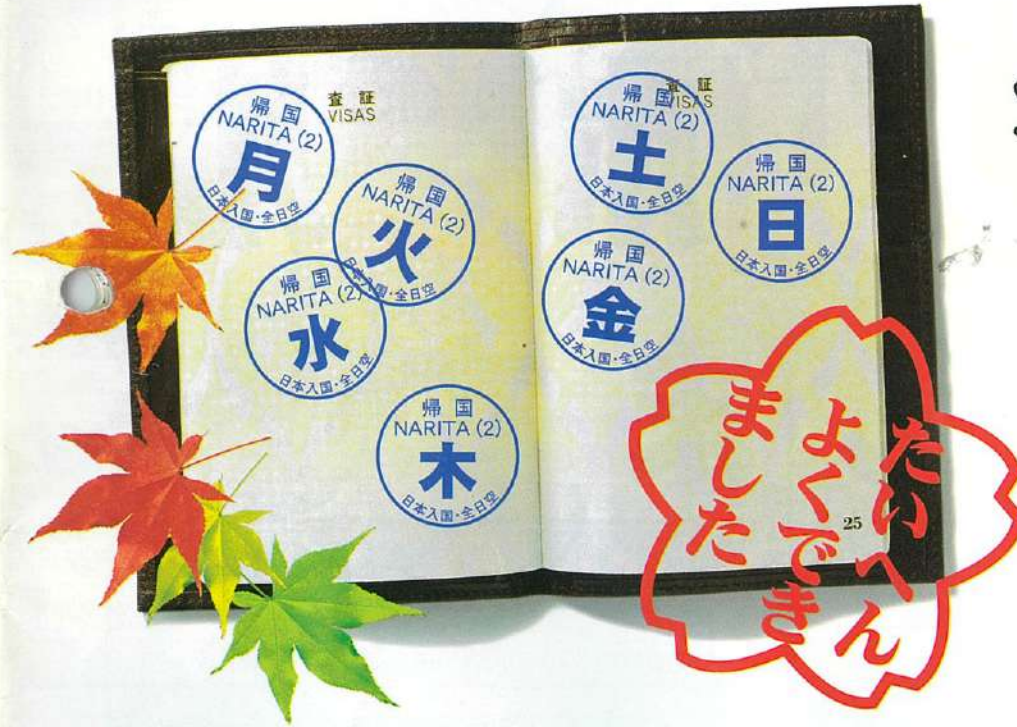 査証
VISAS
帰国
NARITA (2)
月
日本入国・全日空
帰国
NARITA (2)
火
日本入国・全日空
帰国
NARITA (2)
水
日本入国・全日空
帰国
NARITA (2)
木
日本入国・全日空
査証
VISAS
帰国
NARITA (2)
土
日本入国・全日空
帰国
NARITA (2)
日
日本入国・全日空
帰国
NARITA (2)
金
日本入国・全日空
たいへん
よくでき
ました
25